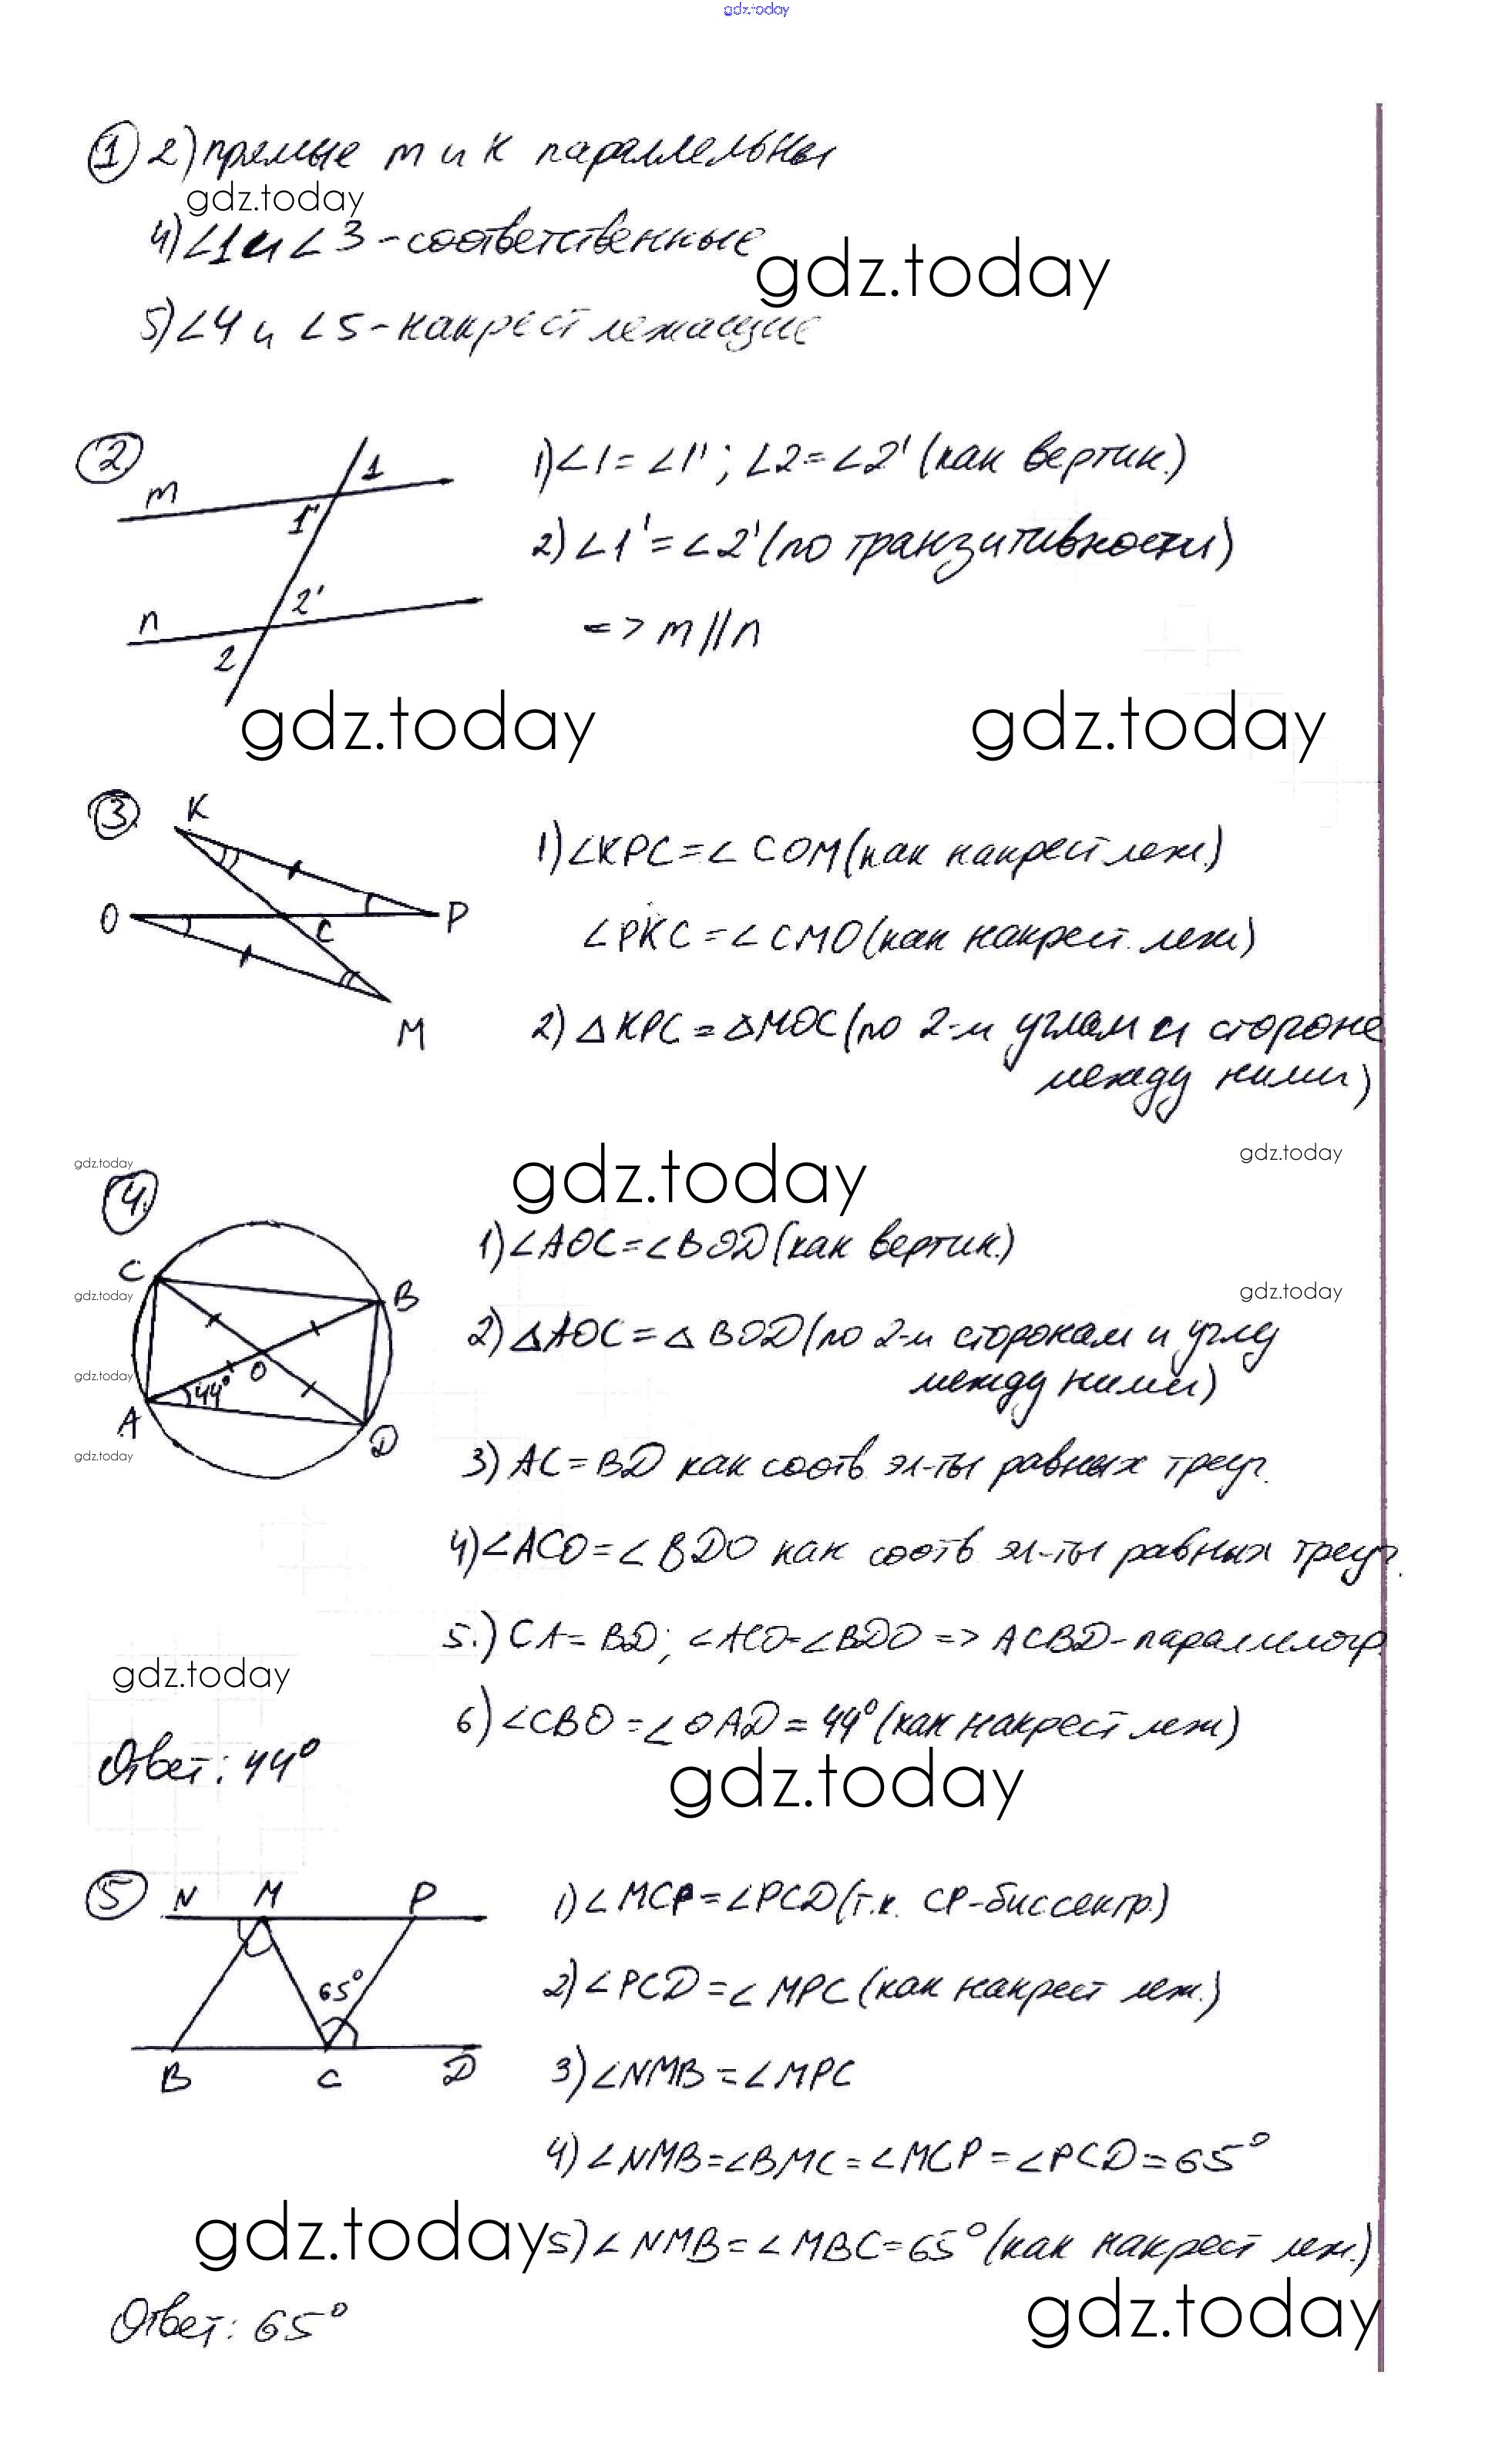 gdz.today
① 2) прямые m и k параллельны
gdz.today
4) ∠1 и ∠3 - соответственные
gdz.today
5) ∠4 и ∠5 - накрест лежащие
② 1) ∠1 = ∠1' ; ∠2 = ∠2' (как вертик.)
m 1 1'
2) ∠1' = ∠2' (по транзитивности)
n 2' 2
=> m || n
gdz.today gdz.today
③ K O C P M
1) ∠KPC = ∠COM (как накрест леж.)
∠PKC = ∠CMO (как накрест. леж)
2) △KPC = △MOC (по 2-м углам и стороне
между ними)
gdz.today gdz.today gdz.today
④.
C B O 44° A D
1) ∠AOC = ∠BOD (как вертик.)
gdz.today gdz.today
2) △AOC = △BOD (по 2-м сторонам и углу
между ними)
gdz.today
gdz.today
3) AC = BD как соотв. эл-ты равных треуг.
4) ∠ACO = ∠BDO как соотв эл-ты равных треуг.
5.) CA = BD; ∠ACO = ∠BDO => ACBD - параллелогр.
gdz.today
6) ∠CBO = ∠OAD = 44° (как накрест леж)
Ответ: 44°
gdz.today
⑤ N M P
65°
B C D
1) ∠MCP = ∠PCD (т.к. CP - биссектр.)
2) ∠PCD = ∠MPC (как накрест леж.)
3) ∠NMB = ∠MPC
4) ∠NMB = ∠BMC = ∠MCP = ∠PCD = 65°
gdz.today
5) ∠NMB = ∠MBC = 65° (как накрест леж.)
gdz.today
Ответ: 65°